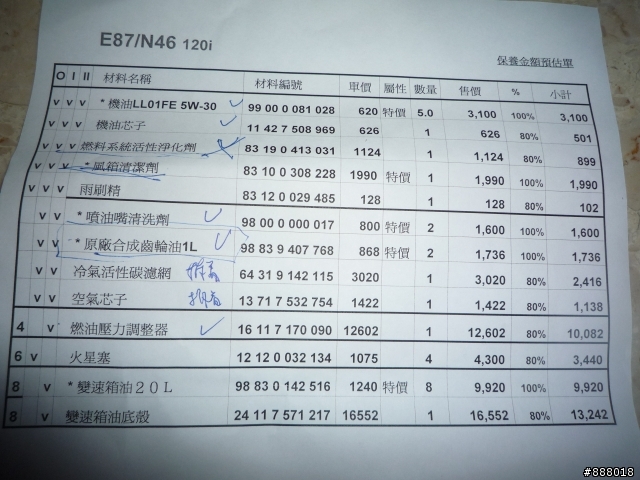 E87/N46 120i
保養金額預估單
O I II 材料名稱 材料編號 單價 屬性 數量 售價 % 小計
v v v *機油LL01FE 5W-30 99 00 0 081 028 620 特價 5.0 3,100 100% 3,100
v v v 機油芯子 11 42 7 508 969 626 1 626 80% 501
v v v 燃料系統活性淨化劑 83 19 0 413 031 1124 1 1,124 80% 899
v v v *風箱清潔劑 83 10 0 308 228 1990 特價 1 1,990 100% 1,990
v v v 雨刷精 83 12 0 029 485 128 1 128 80% 102
v v *噴油嘴清洗劑 98 00 0 000 017 800 特價 2 1,600 100% 1,600
v v *原廠合成齒輪油1L 98 83 9 407 768 868 特價 2 1,736 100% 1,736
v v 冷氣活性碳濾網 64 31 9 142 115 3020 1 3,020 80% 2,416
v v 空氣芯子 13 71 7 532 754 1422 1 1,422 80% 1,138
4 v 燃油壓力調整器 16 11 7 170 090 12602 1 12,602 80% 10,082
6 v 火星塞 12 12 0 032 134 1075 4 4,300 80% 3,440
8 v *變速箱油20L 98 83 0 142 516 1240 特價 8 9,920 100% 9,920
8 v 變速箱油底殼 24 11 7 571 217 16552 1 16,552 80% 13,242
#888018